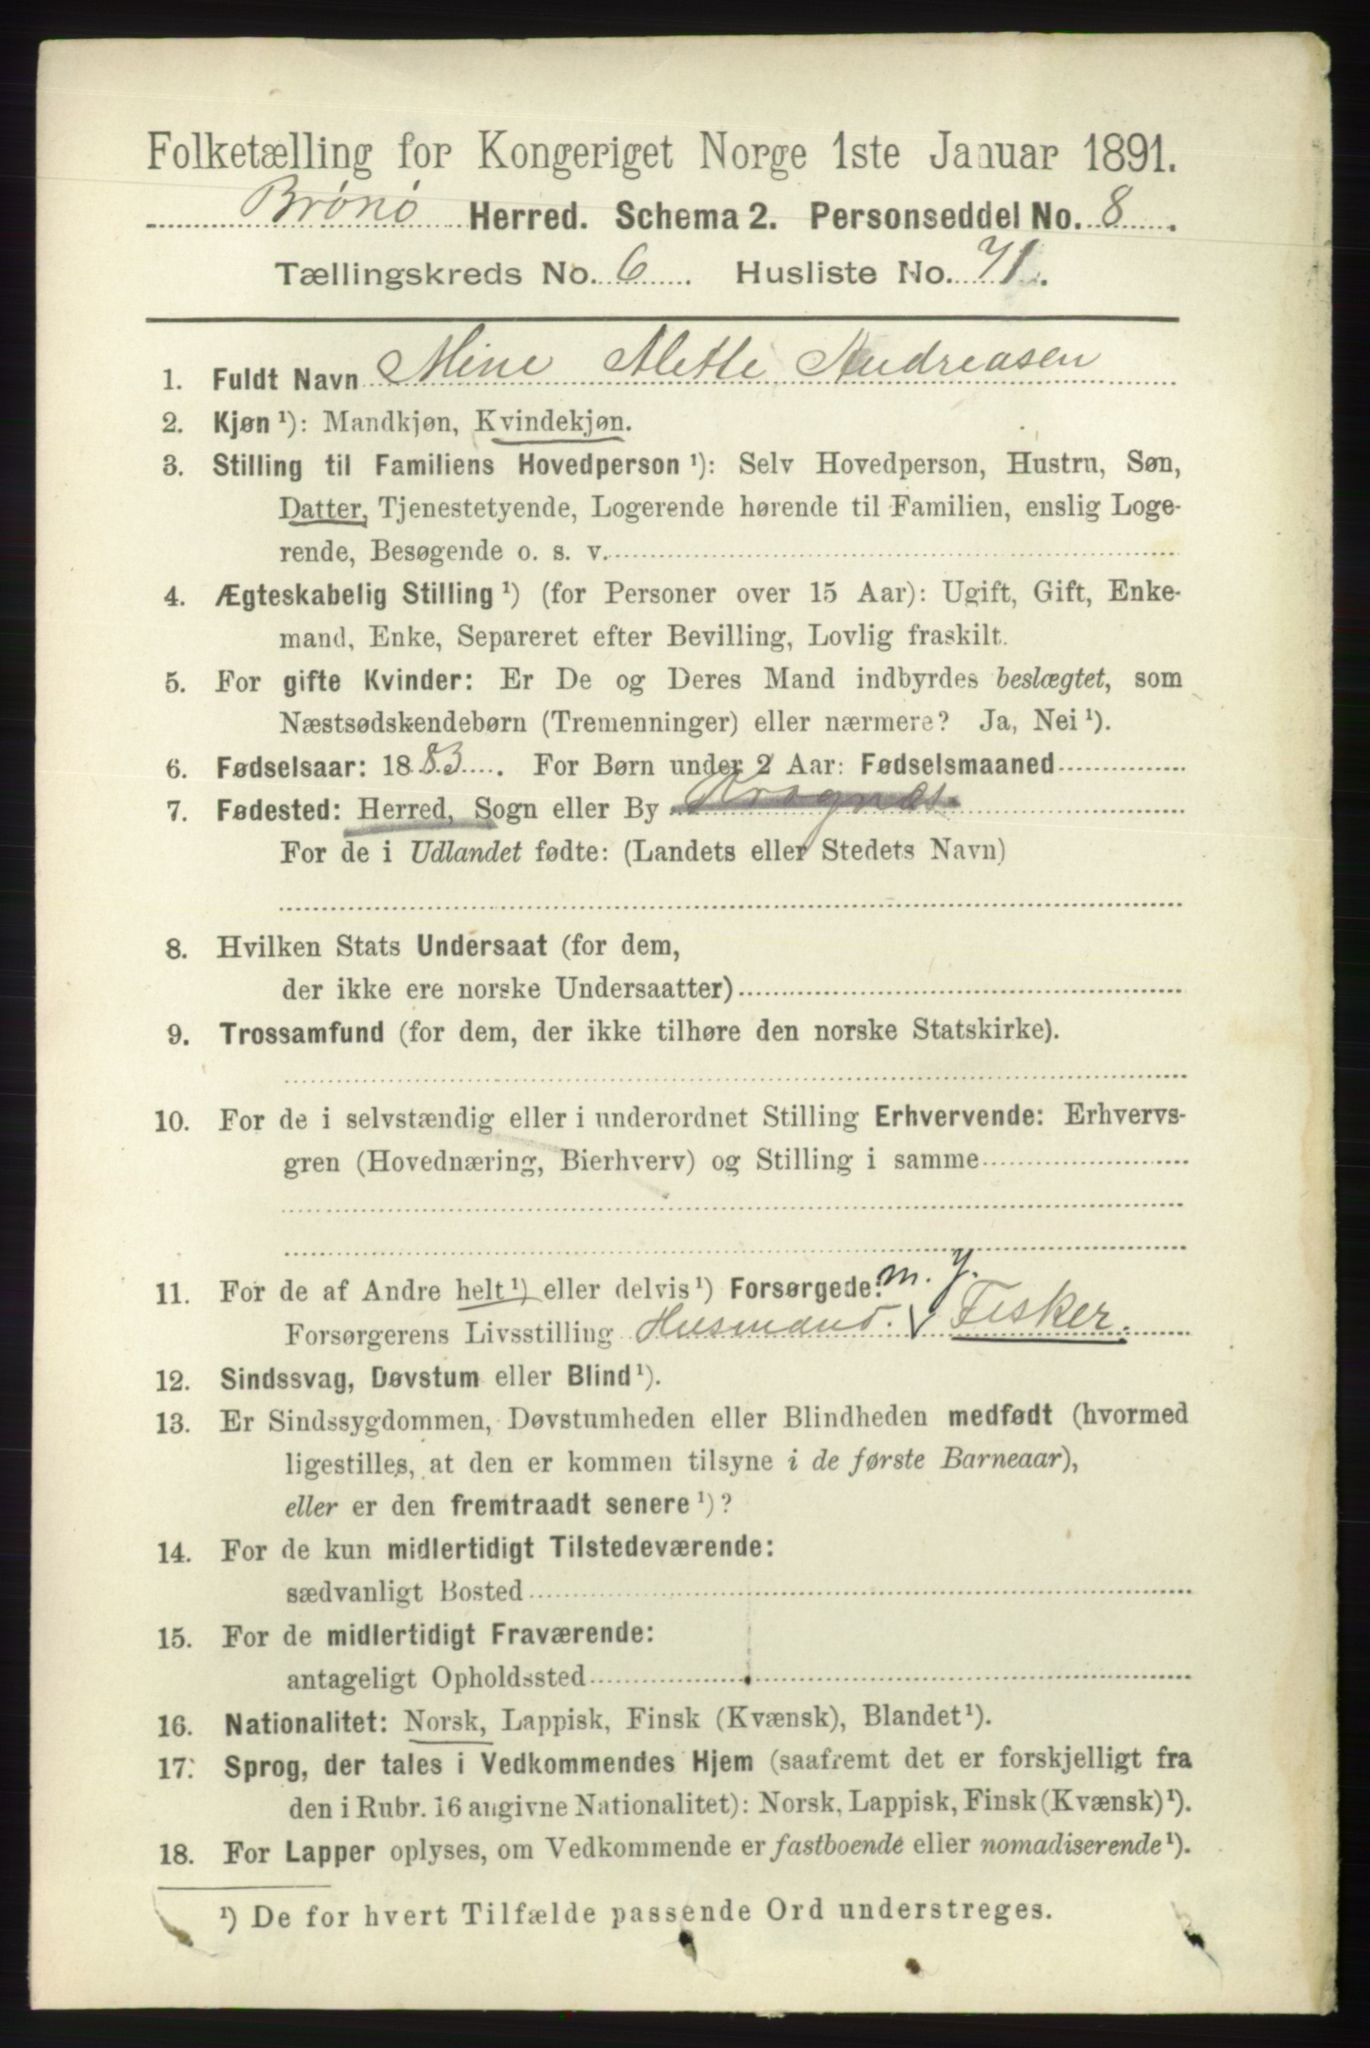 Folketælling for Kongeriget Norge 1ste Januar 1891.
Brønø Herred. Schema 2. Personseddel No. 8.
Tællingskreds No. 6. Husliste No. 71.
1. Fuldt Navn Mine Mette Andreasen
2. Kjøn ¹): Mandkjøn, Kvindekjøn.
3. Stilling til Familiens Hovedperson ¹): Selv Hovedperson, Hustru, Søn,
Datter, Tjenestetyende, Logerende hørende til Familien, enslig Loge-
rende, Besøgende o. s. v.
4. Ægteskabelig Stilling ¹) (for Personer over 15 Aar): Ugift, Gift, Enke-
mand, Enke, Separeret efter Bevilling, Lovlig fraskilt.
5. For gifte Kvinder: Er De og Deres Mand indbyrdes beslægtet, som
Næstsødskendebørn (Tremenninger) eller nærmere? Ja, Nei ¹).
6. Fødselsaar: 1883. For Børn under 2 Aar: Fødselsmaaned
7. Fødested: Herred, Sogn eller By Krognæs
For de i Udlandet fødte: (Landets eller Stedets Navn)
8. Hvilken Stats Undersaat (for dem,
der ikke ere norske Undersaatter)
9. Trossamfund (for dem, der ikke tilhøre den norske Statskirke).
10. For de i selvstændig eller i underordnet Stilling Erhvervende: Erhvervs-
gren (Hovednæring, Bierhverv) og Stilling i samme
11. For de af Andre helt ¹) eller delvis ¹) Forsørgede: m. J.
Forsørgerens Livsstilling Husmand. Fisker.
12. Sindssvag, Døvstum eller Blind ¹).
13. Er Sindssygdommen, Døvstumheden eller Blindheden medfødt (hvormed
ligestilles, at den er kommen tilsyne i de første Barneaar),
eller er den fremtraadt senere ¹)?
14. For de kun midlertidigt Tilstedeværende:
sædvanligt Bosted
15. For de midlertidigt Fraværende:
antageligt Opholdssted
16. Nationalitet: Norsk, Lappisk, Finsk (Kvænsk), Blandet ¹).
17. Sprog, der tales i Vedkommendes Hjem (saafremt det er forskjelligt fra
den i Rubr. 16 angivne Nationalitet): Norsk, Lappisk, Finsk (Kvænsk) ¹).
18. For Lapper oplyses, om Vedkommende er fastboende eller nomadiserende ¹).
¹) De for hvert Tilfælde passende Ord understreges.